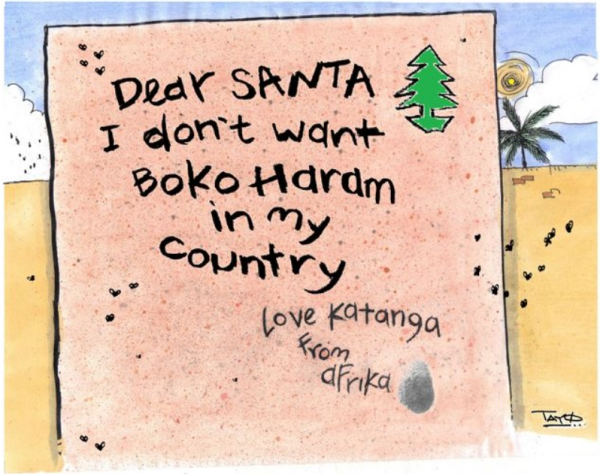 Dear SANTA
I don't want
Boko Haram
in my
country
Love Katanga
From
aFrika
TAYO